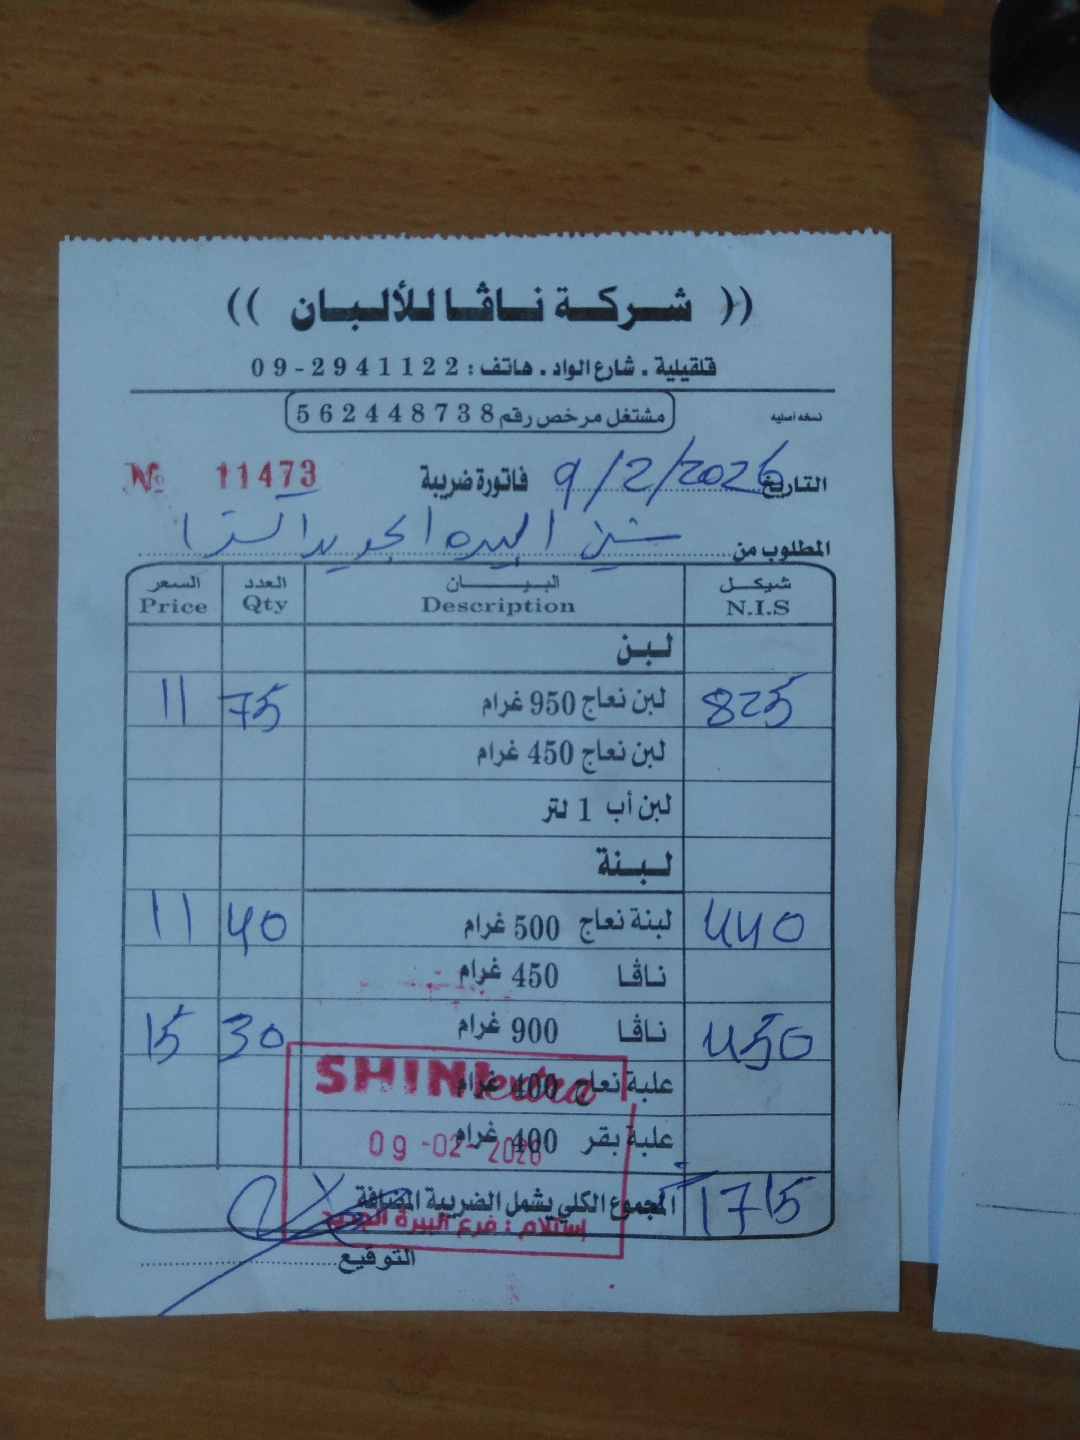 (( شركة ناڤا للألبان ))
قلقيلية . شارع الواد . هاتف : 09-2941122
نسخه أصليه
مشتغل مرخص رقم 562448738
التاريخ 9/2/2026 فاتورة ضريبة № 11473
المطلوب من شيني البيره الجديد اكسترا
شيكل البيان العدد السعر
N.I.S Description Qty Price
لبن
825 لبن نعاج 950 غرام 75 11
لبن نعاج 450 غرام
لبن أب 1 لتر
لبنة
440 لبنة نعاج 500 غرام 40 11
ناڤا 450 غرام
450 ناڤا 900 غرام 30 15
SHINI extra
علبة نعاج 400 غرام
علبة بقر 400 غرام
09-02-2026
المجموع الكلي يشمل الضريبة المضافة 1715
إستلام : فرع البيرة الجديد
التوقيع